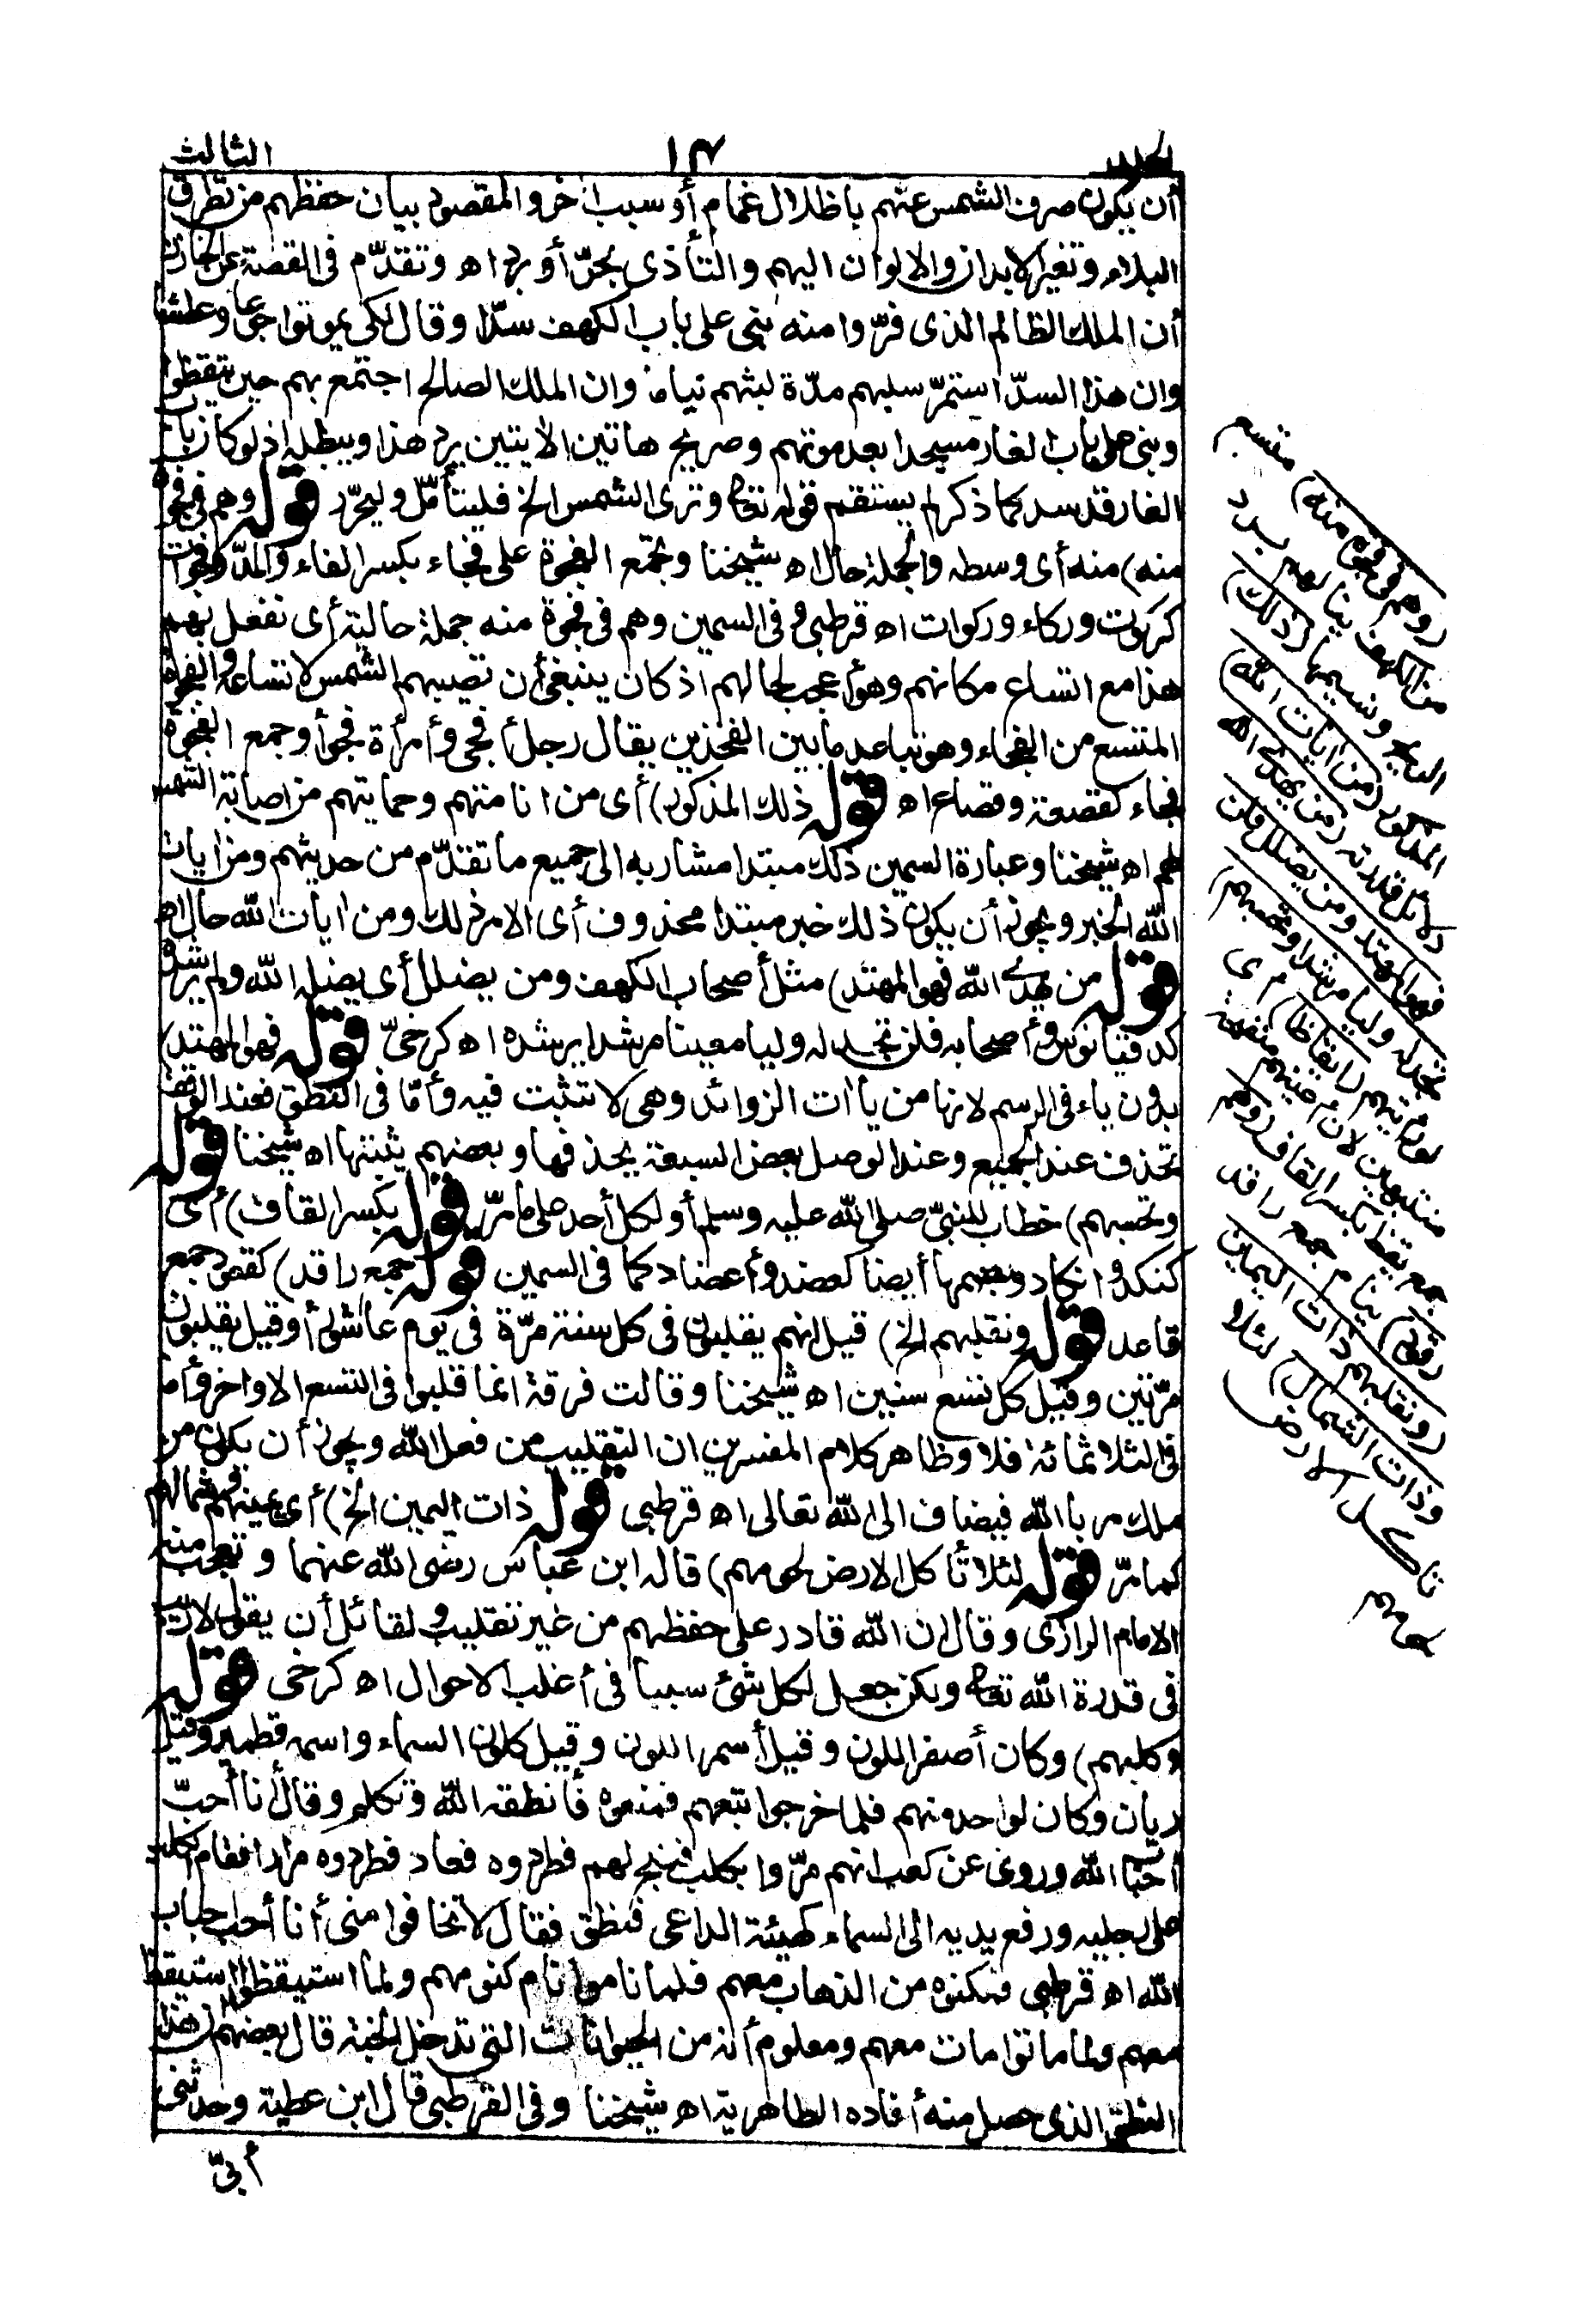 الجلد
١٣
الثالث
أن يكون صرف الشمس عنهم باظلال غمام أو سبب اخر والمقصود بيان حفظهم من تطرق
البلاء وتغير الابدان والالوان اليهم والتأذى بحرّ أو برد اه وتقدّم فى القصة عن الخازن
أن الملك الظالم الذى فرّوا منه بنى على باب الكهف سدّا وقال لكى يموتوا جوعا وعطشا
وان هذا السدّ استمرّ سليهم مدّة لبثهم نياما وان الملك الصالح اجتمع بهم حين تيقظوا
وبنى على باب الغار مسجدا بعد موتهم وصريح هاتين الايتين يرد هذا ويبطله اذ لو كان باب
الغار قد سد كما ذكر لم يستقم قوله تعالى وترى الشمس الخ فليتأمّل وليحرّر قوله وهم فى فجوة
منه) منه أى وسطه والجملة حال اه شيخنا وتجمع الفجوة على فجاء بكسر الفاء والمدّ وفجوات
كركوت وركاء وركوات اه قرطبى وفى السمين وهم فى فجوة منه جملة حالية أى نفعل بهم
هذا مع اتساع مكانهم وهو أعجب لحالهم اذ كان ينبغى أن تصيبهم الشمس لاتساعه والفجوة
المتسع من الفجاء وهو تباعد ما بين الفخذين يقال رجل أفجى وأمرأة فجوأ وجمع الفجوة
فجاء كقصعة وقصاع اه قوله ذلك المذكور) أى من انامتهم وحمايتهم من اصابة الشمس
لهم اه شيخنا وعبارة السمين ذلك مبتدا مشار به الى جميع ما تقدّم من حديثهم ومن ايات
الله الخبر ويجوز أن يكون ذلك خبر مبتدا محذوف أى الامر ذلك ومن ايات الله حال اه
قوله من يهدى الله فهو المهتد) مثل أصحاب الكهف ومن يضلل أى يضله الله ولم يرشده
كدقيانوس وأصحابه فلن تجد له وليا معينا مرشدا يرشده اه كرخىّ قوله فهو المهتد)
بدون ياء فى الرسم لانها من ياآت الزوائد وهى لا تثبت فيه وأمّا فى النطق فعند الوقف
تحذف عند الجميع وعند الوصل بعض السبعة يحذفها وبعضهم يثبتها اه شيخنا قوله
وتحسبهم) خطاب للنبىّ صلى الله عليه وسلم أو لكل أحد على ما مرّ قوله بكسر القاف) أى
كنكد وانكاد وبضمها أيضا كعضد وأعضاد كما فى السمين قوله جمع راقد) كقعود جمع
قاعد قوله ونقلبهم الخ) قيل انهم يقلبون فى كل سنة مرّة فى يوم عاشوراء وقيل يقلبون
مرّتين وقيل كل تسع سنين اه شيخنا وقالت فرقة انما قلبوا فى التسع الاواخر وأما
فى الثلاثمائة فلا وظاهر كلام المفسرين ان التقليب من فعل الله ويجوز أن يكون من
ملك مر بأالله فيضاف الى الله تعالى اه قرطبى قوله ذات اليمين الخ) أى يمينهم وشمالهم
كما مرّ قوله لئلا تأكل الارض لحومهم) قاله ابن عباس رضى الله عنهما وتعجب منه
الامام الرازى وقال ان الله قادر على حفظهم من غير تقليب ولقائل أن يقول لا ريب
فى قدرة الله تعالى ولكن جعل لكل شئ سببا فى أغلب الاحوال اه كرخى قوله
وكلبهم) وكان أصفر اللون وقيل أسمر اللون وقيل كلون السماء واسمه قطمير وقيل
ريان وكان لواحد منهم فلما خرجوا تبعهم فمنعوه فأنطقه الله وتكلم وقال أنا أحبّ
احباء الله وروى عن كعب انهم مرّوا بكلب فنبح لهم فطردوه فعاد فطردوه مرارا فقام الكلب
على رجليه ورفع يديه الى السماء كهيئة الداعى فنطق فقال لا تخافوا منى أنا أحب احباب
الله اه قرطبى فمكنوه من الذهاب معهم فلما ناموا نام كنومهم ولما استيقظوا استيقظ
معهم ولما ماتوا مات معهم ومعلوم أنه من الحيوانات التى تدخل الجنة قال بعضهم هذا
النطق الذى حصل منه أفاده الطاهرية اه شيخنا وفى القرطبى قال ابن عطية وحدثنى
أبىّ
(وهم فى فجوة منه) متسع
من الكهف ينالهم برد
الريح ونسيمها (ذلك)
المذكور (من ايات الله)
دلائل قدرته (من يهدى الله
فهو المهتد ومن يضلل فلن
تجد له وليا مرشدا وتحسبهم)
لو رأيتهم (أيقاظا) أى
منتبهين لان أعينهم منفتحة
جمع يقظ بكسر القاف (وهم
رقود) نيام جمع راقد
(ونقلبهم ذات اليمين
وذات الشمال) لئلا
تاكل الارض
لحومهم